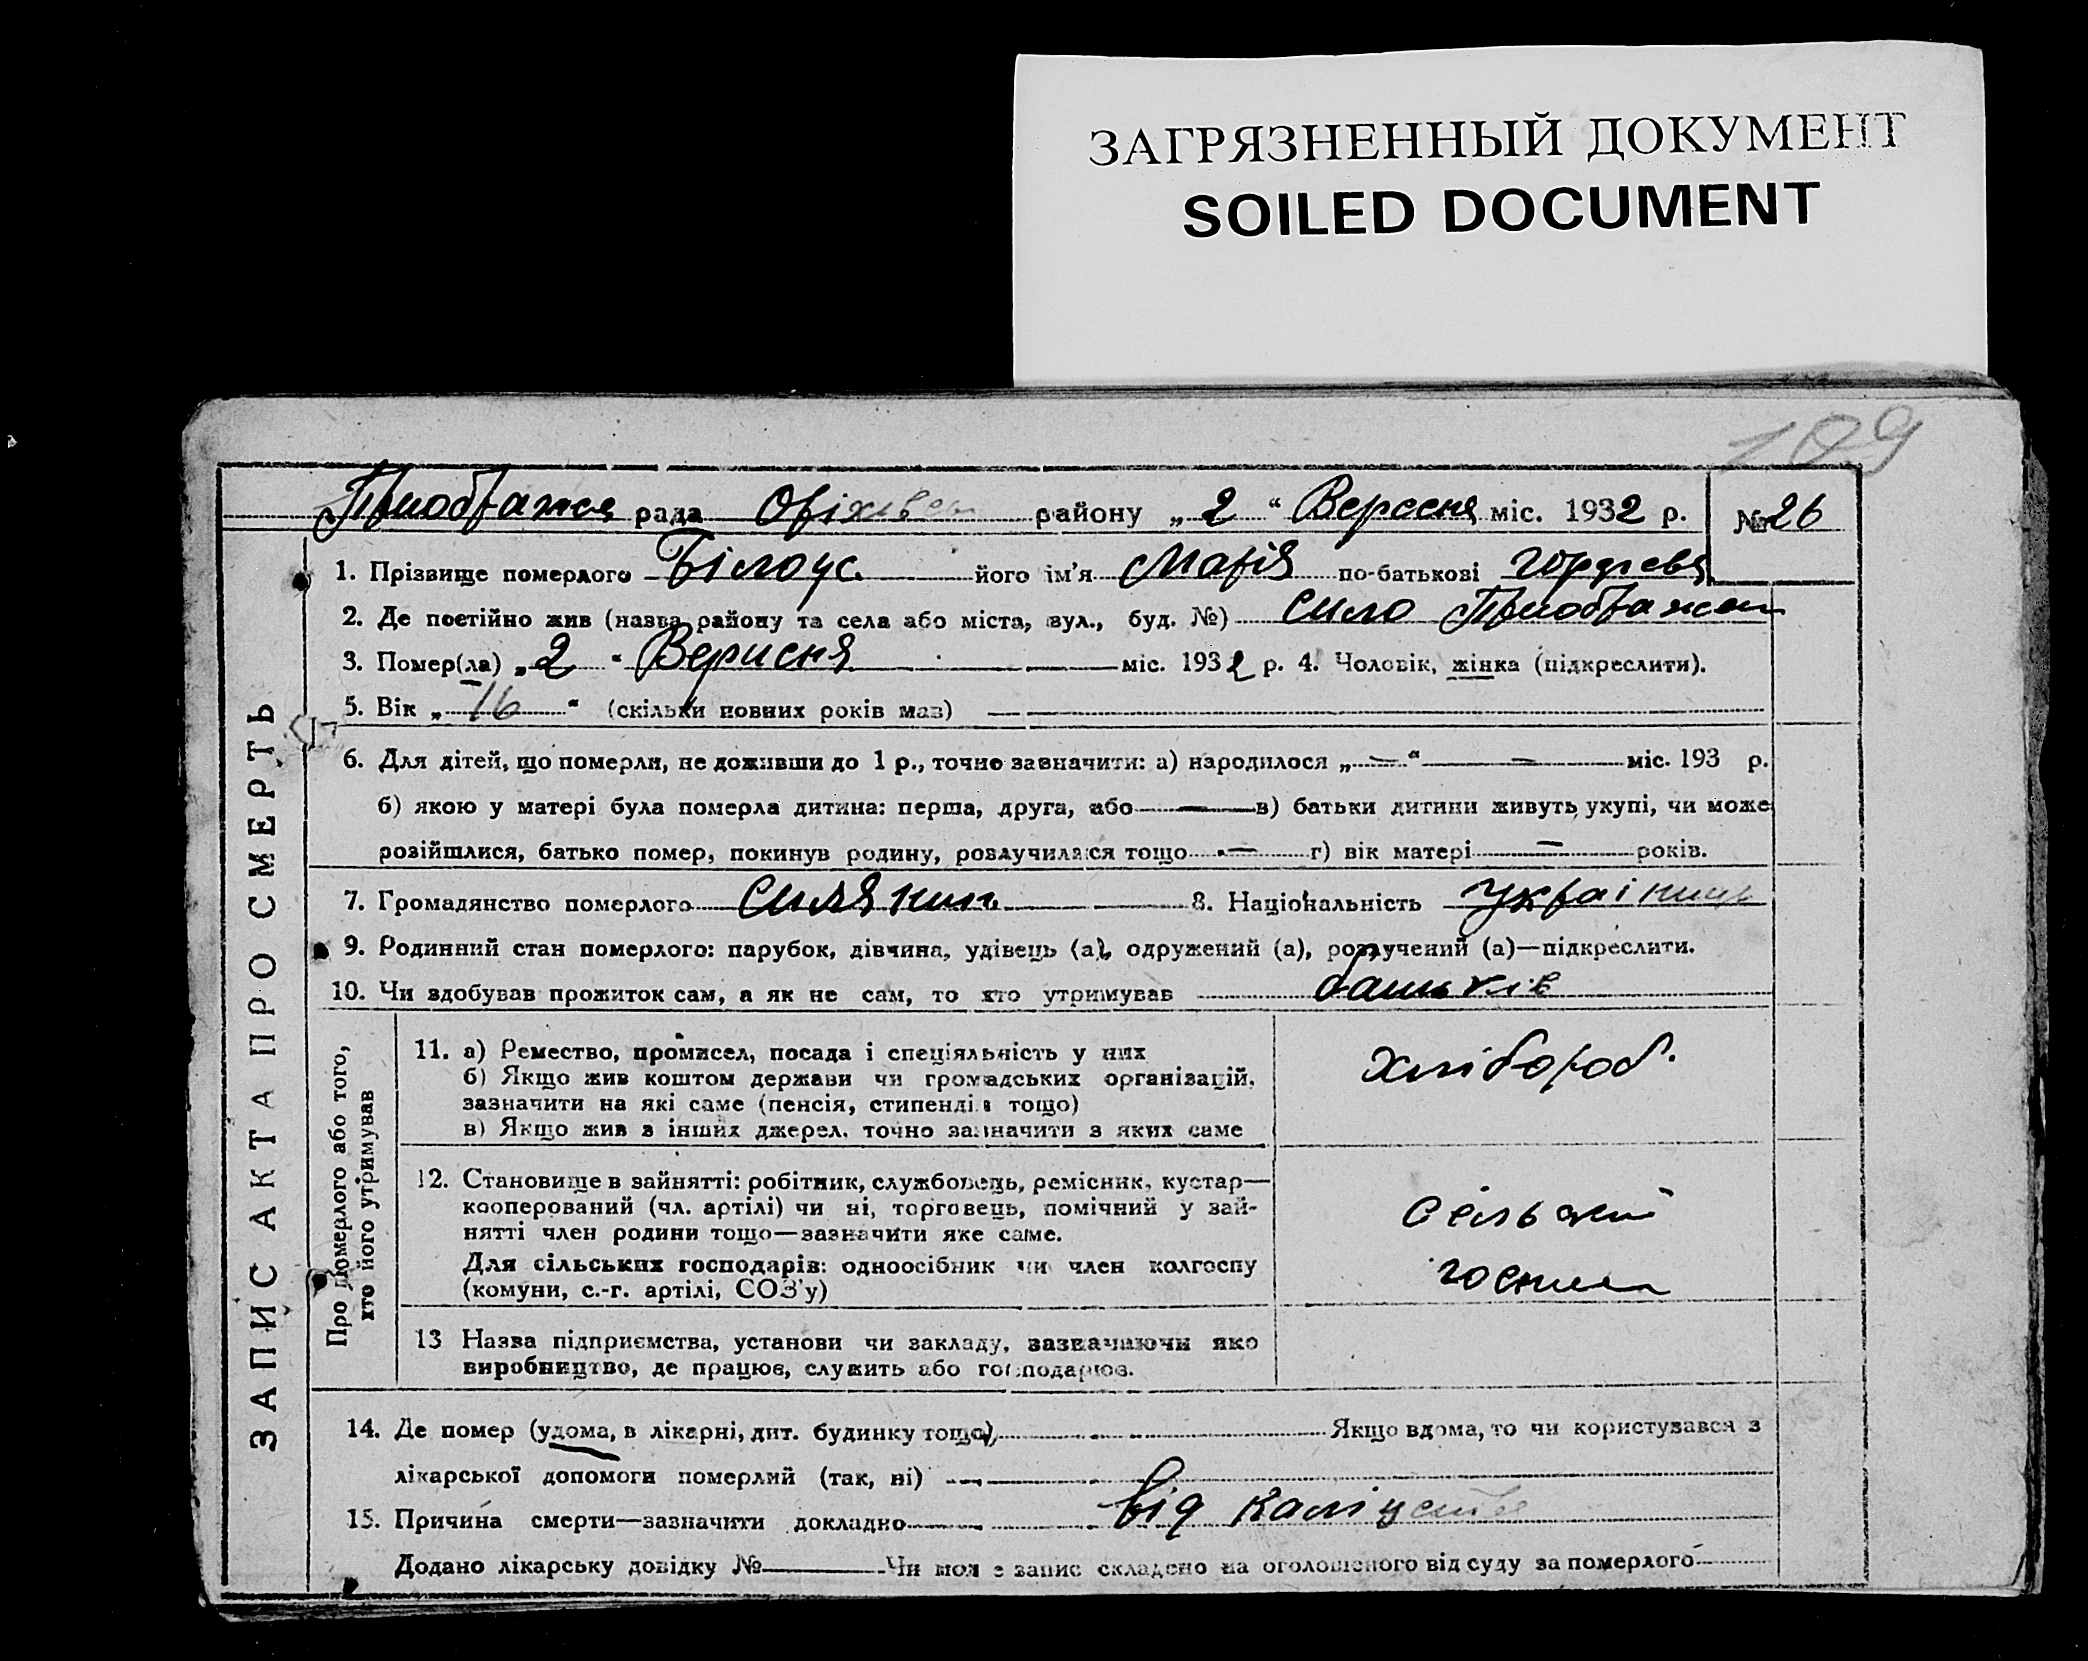 ЗАГРЯЗНЕННЫЙ ДОКУМЕНТ
SOILED DOCUMENT
109
рада Оріхівськ району „ 2 “ Вересня міс. 1932 р. № 26
1. Прізвище померлого Білоус його ім'я Марія по-батькові Гордієвн
2. Де постійно жив (назва району та села або міста, вул., буд. №) село
3. Помер(ла) „ 2 “ Верисня міс. 1932 р. 4. Чоловік, жінка (підкреслити).
5. Вік „ 16 “ (скільки повних років мав)
6. Для дітей, що померли, не доживши до 1 р., точно зазначити: а) народилося „ — “ — міс. 193 р.
б) якою у матері була померла дитина: перша, друга, або — в) батьки дитини живуть укупі, чи може
розійшлися, батько помер, покинув родину, розлучилася тощо — г) вік матері — років.
7. Громадянство померлого 8. Національність українц
9. Родинний стан померлого: парубок, дівчина, удівець (а), одружений (а), розлучений (а)—підкреслити.
10. Чи здобував прожиток сам, а як не сам, то хто утримував батьків
ЗАПИС АКТА ПРО СМЕРТЬ
Про померлого або того,
хто його утримував
11. а) Ремество, промисел, посада і спеціяльність у них
б) Якщо жив коштом держави чи громадських організацій,
зазначити на які саме (пенсія, стипендія тощо)
в) Якщо жив з інших джерел, точно зазначити з яких саме
хлібороб.
12. Становище в зайнятті: робітник, службовець, ремісник, кустар—
кооперований (чл. артілі) чи ні, торговець, помічний у зай-
нятті член родини тощо—зазначити яке саме.
Для сільських господарів: одноосібник чи член колгоспу
(комуни, с.-г. артілі, СОЗ'у)
13 Назва підприємства, установи чи закладу, зазначаючи яко
виробництво, де працює, служить або господарює.
14. Де помер (удома, в лікарні, дит. будинку тощо) Якщо вдома, то чи користувався з
лікарської допомоги померлий (так, ні)
15. Причина смерти—зазначити докладно від каліцства
Додано лікарську довідку № Чи нол е запис складено на оголошеного від суду за померлого